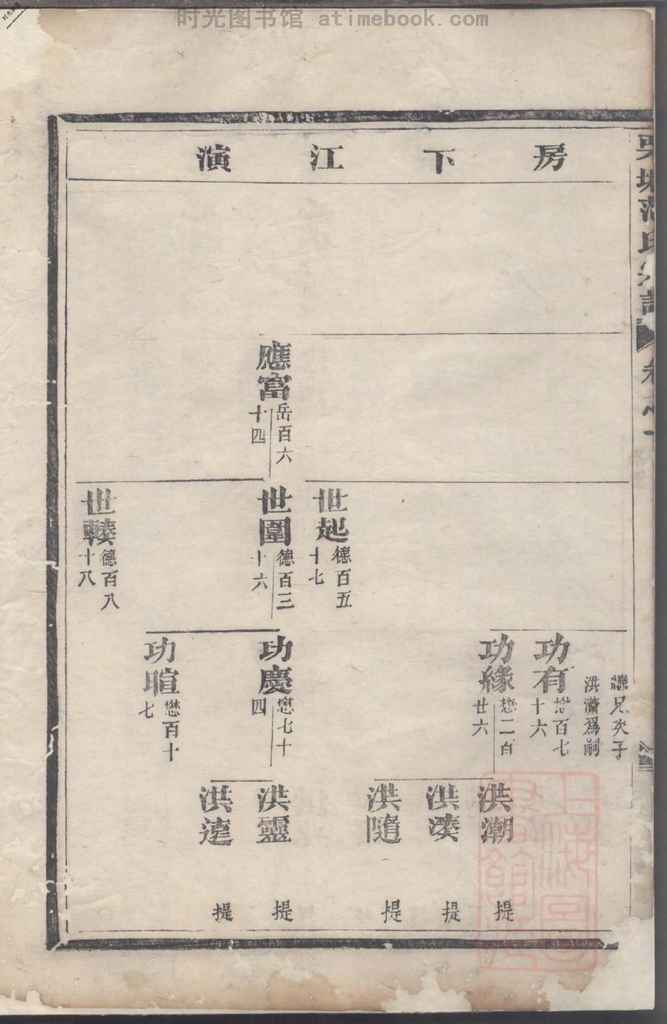 时光图书馆 atimebook.com
房下江演
應富 岳百六十四
世起 德百五十七
世圍 德百三十六
世轃 德百八十八
讓兄次子
洪瀟爲嗣
功有 懋百七十六
功緣 懋二百廿六
功慶 懋七十四
功暄 懋百十七
洪潮 提
洪湊 提
洪隨 提
洪靈 提
洪達 提